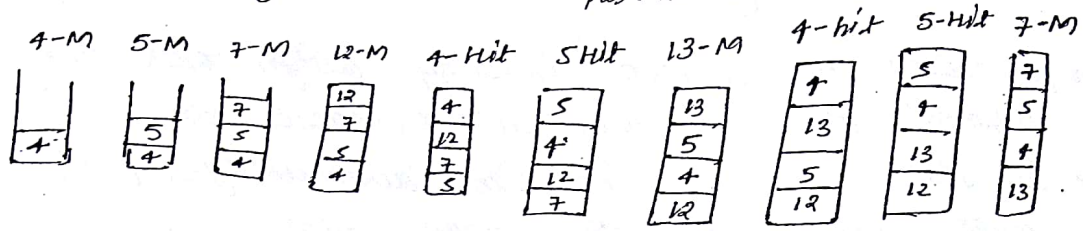 4-M 5-M 7-M 12-M 4-Hit 5Hit 13-M 4-hit 5-Hit 7-M
4
5
4
7
5
4
12
7
5
4
4
12
7
5
5
4
12
7
13
5
4
12
4
13
5
12
5
4
13
12
7
5
4
13